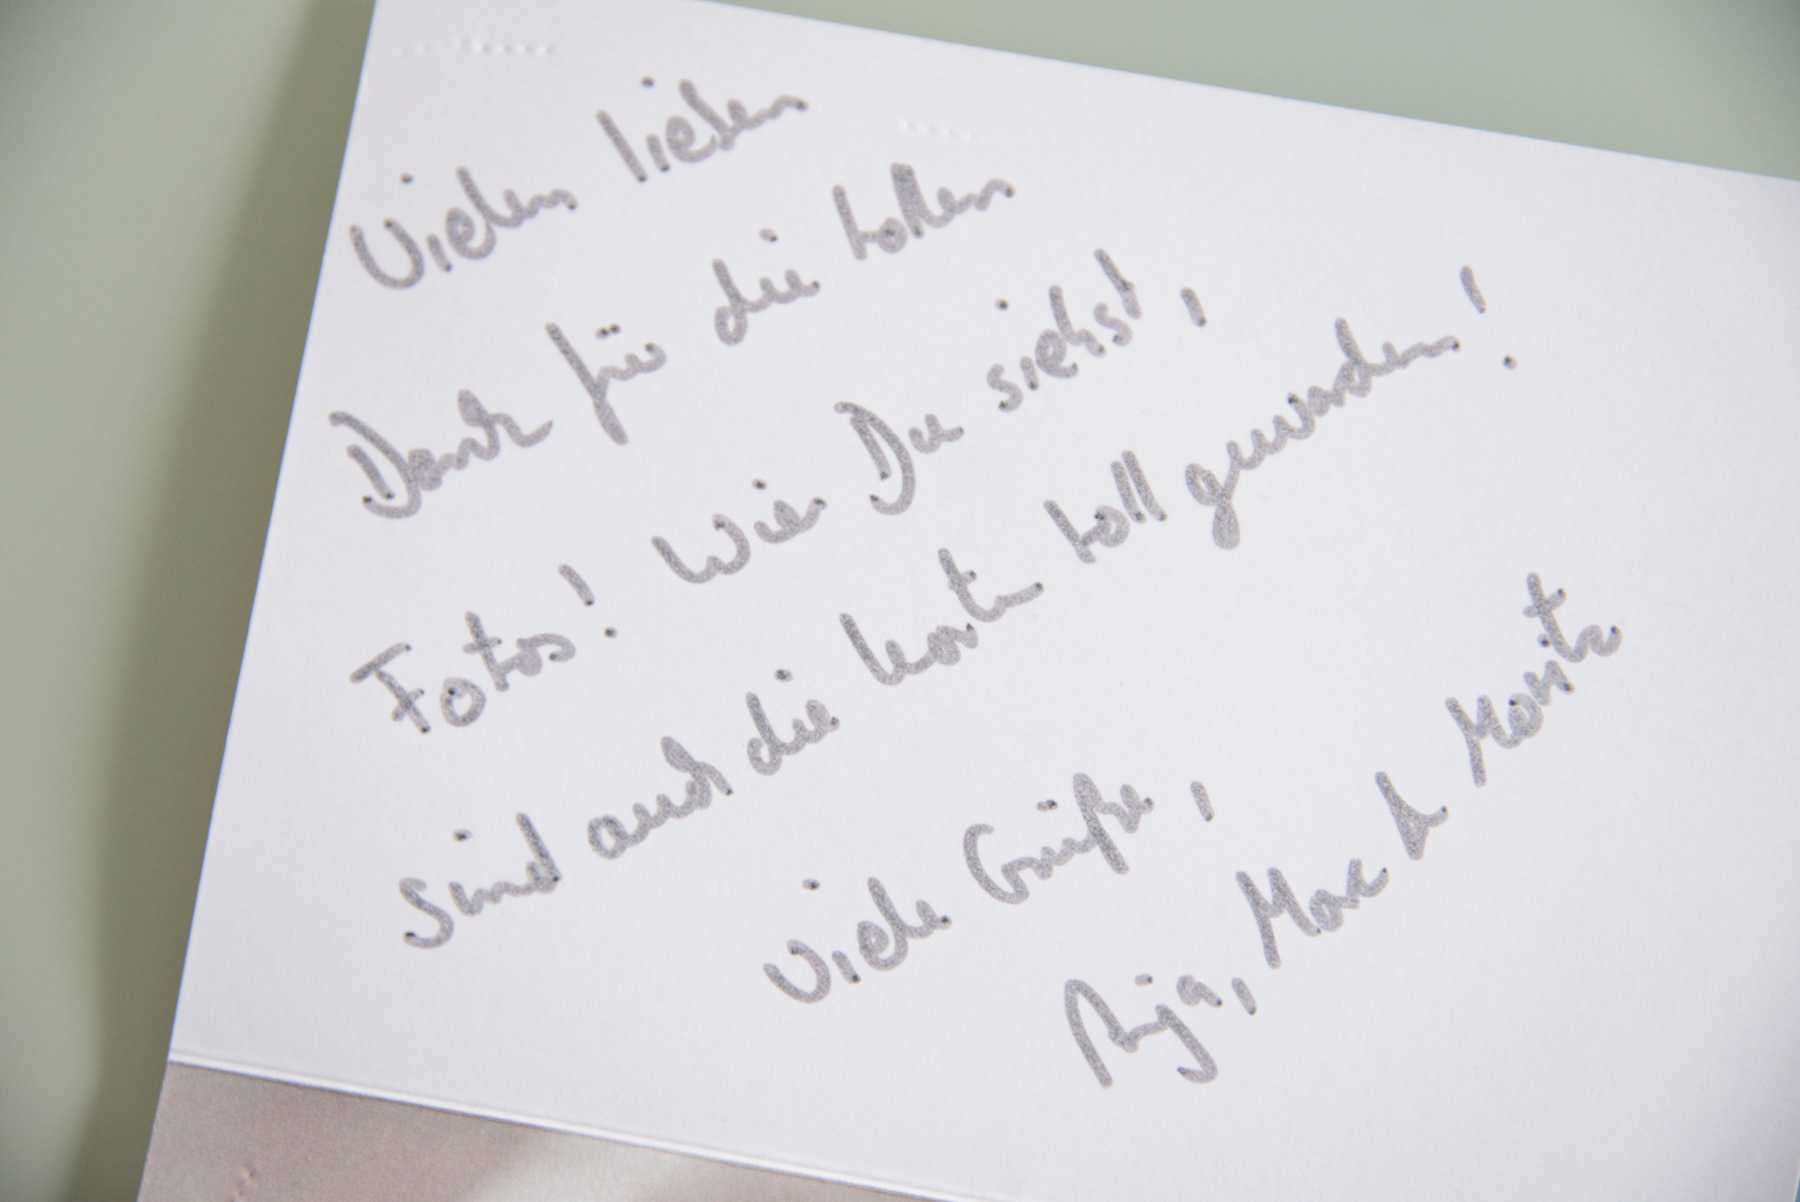 Vielen lieben
Dank für die tollen
Fotos! Wie Du siehst,
sind auch die Karten toll geworden!
Viele Grüße,
Anja, Marc & Moritz